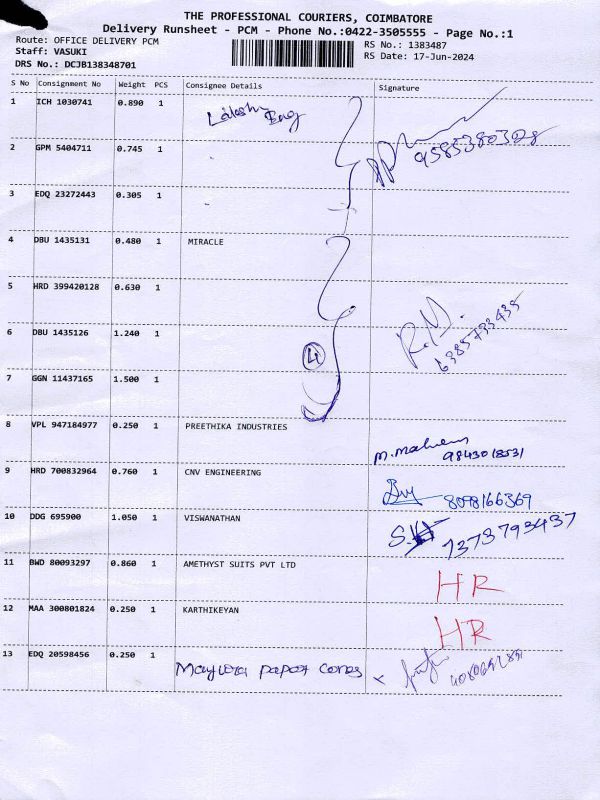 THE PROFESSIONAL COURIERS, COIMBATORE
Delivery Runsheet - PCM - Phone No.:0422-3505555 - Page No.:1
Route: OFFICE DELIVERY PCM
Staff: VASUKI
DRS No.: DCJB138348701
RS No.: 1383487
RS Date: 17-Jun-2024
S No Consignment No Weight PCS Consignee Details Signature
1 ICH 1030741 0.890 1
2 GPM 5404711 0.745 1
3 EDQ 23272443 0.305 1
4 DBU 1435131 0.480 1 MIRACLE
5 HRD 399420128 0.630 1 R.M.
6 DBU 1435126 1.240 1 4 6385733435
7 GGN 11437165 1.500 1
8 VPL 947184977 0.250 1 PREETHIKA INDUSTRIES
9843018531
9 HRD 700832964 0.760 1 CNV ENGINEERING
8098166369
10 DDG 695900 1.050 1 VISWANATHAN
7373793437
11 BWD 80093297 0.860 1 AMETHYST SUITS PVT LTD HR
12 MAA 300801824 0.250 1 KARTHIKEYAN HR
13 EDQ 20598456 0.250 1 Mayura paper cones x